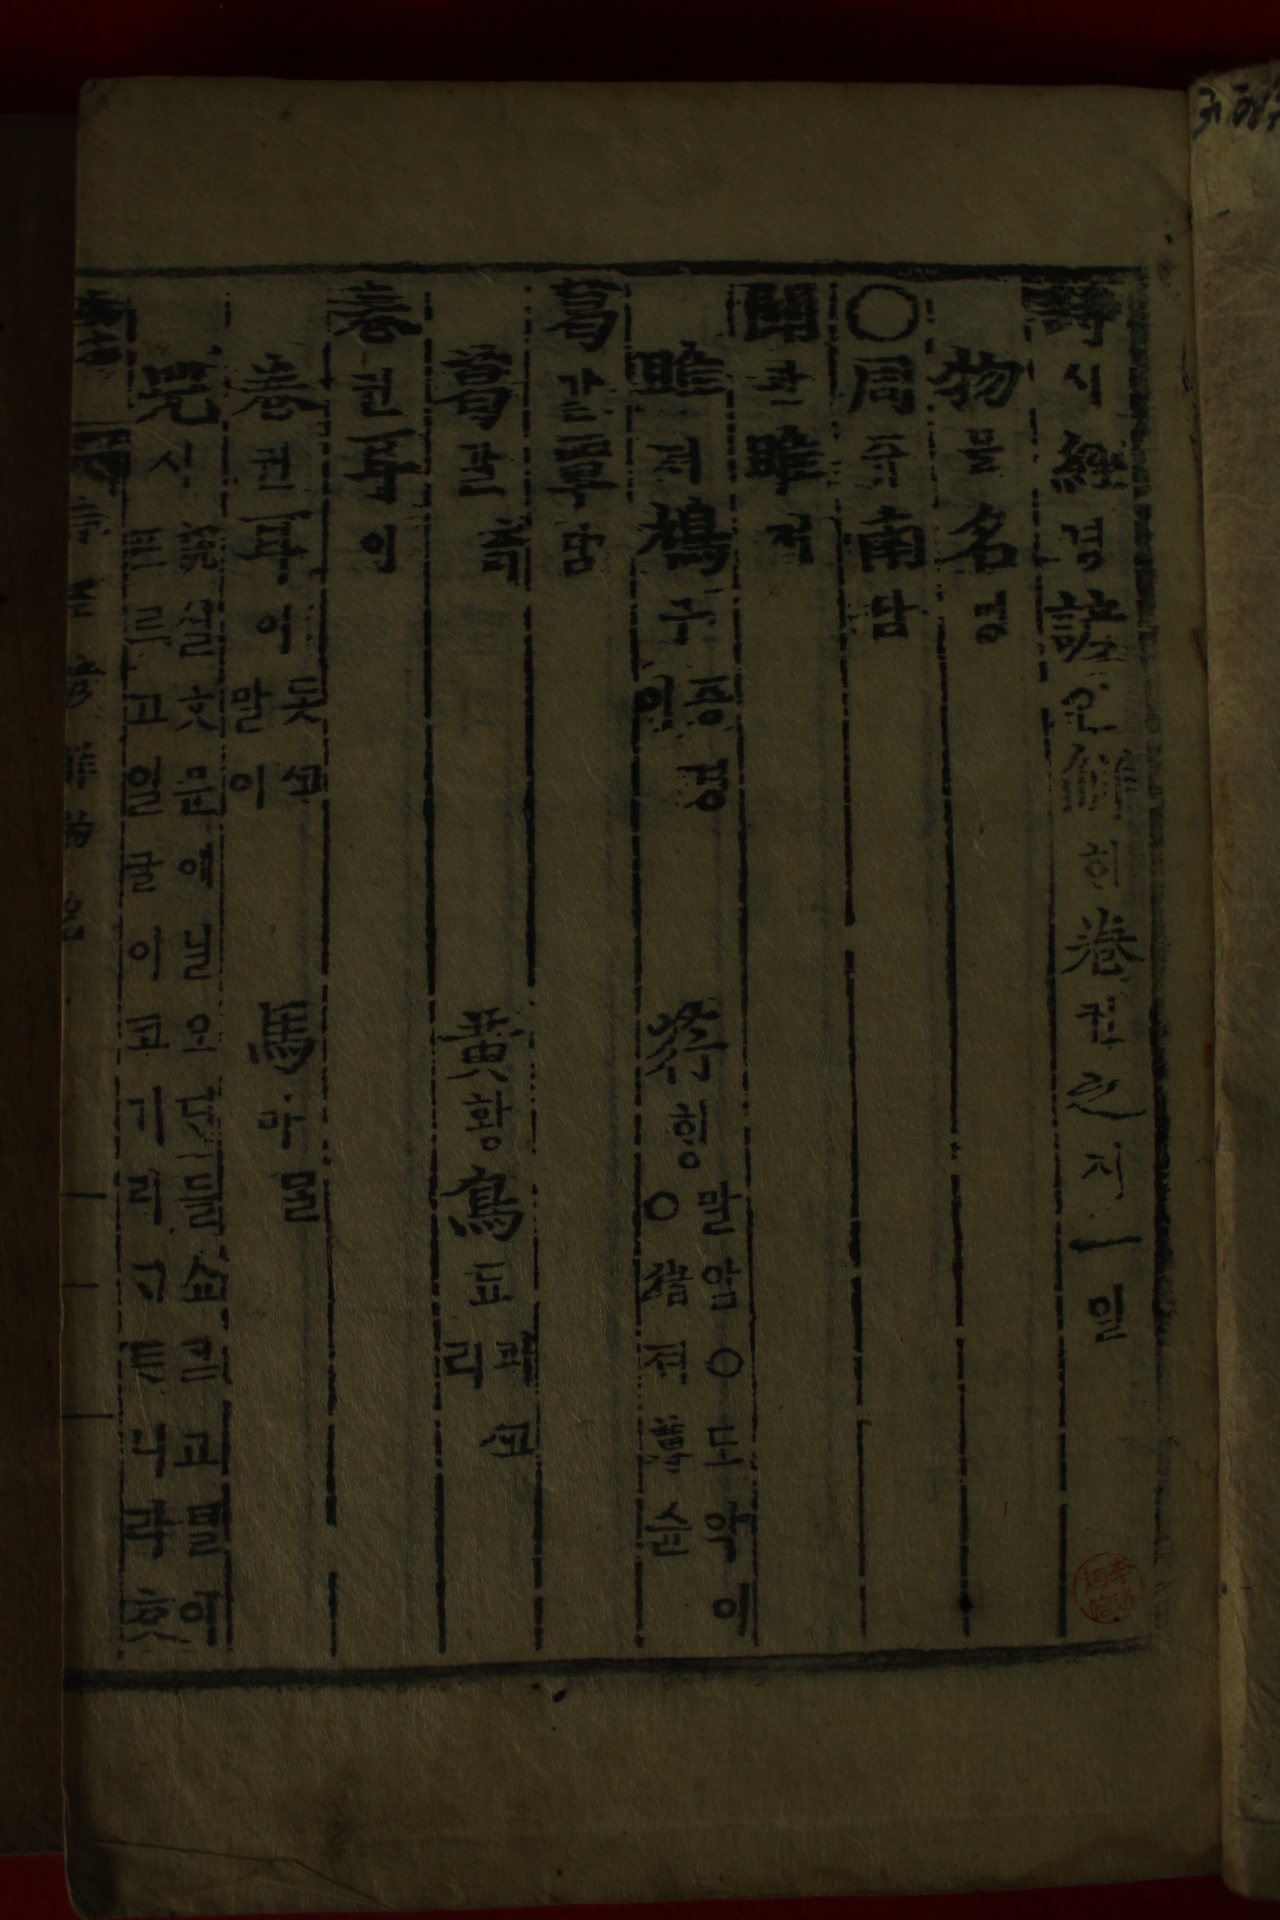 詩시經경諺언解ᄒᆡ卷권之지一일
物믈名명
○周쥬南남
關관雎져
雎져鳩구 증경이 荇ᄒᆡᆼ 말암○도악이○猪져蓴슌
葛갈覃담
葛갈 츩 黃황鳥됴 괴ᄭᅩ리
卷권耳이
卷권耳이 돗ᄭᅩ말이 馬마 ᄆᆞᆯ
兕시 說셜文문에닐오ᄃᆡ들쇼 ᄀᆞᆮ고털에
프르고일굴이코기리ᄀᆞᄐᆞ니라爻